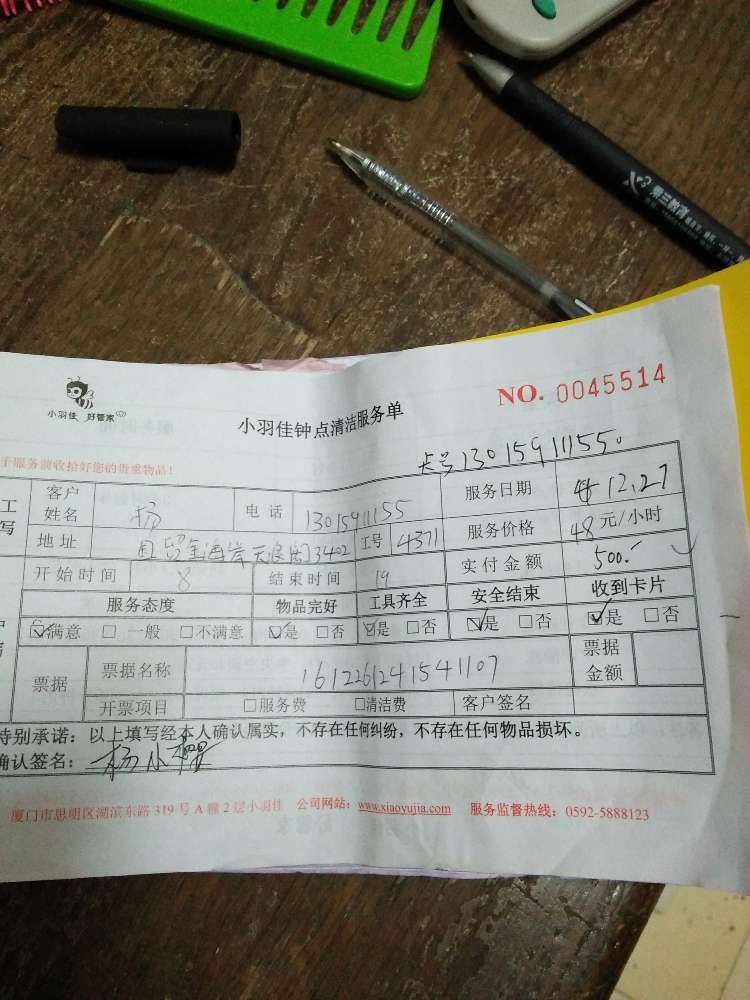 第三教育
小羽佳 好管家
小羽佳钟点清洁服务单
NO. 0045514
于服务前收拾好您的贵重物品!
卡号13015911155.
客户姓名 杨 电话 13015911155 服务日期 12.27
地址 国贸金海岸天浪阁3402 工号 4371 服务价格 48元/小时
开始时间 8 结束时间 19 实付金额 500.-
服务态度 物品完好 工具齐全 安全结束 收到卡片
☑满意 □ 一般 □不满意 ☑是 □否 ☑是 □否 ☑是 □否 ☑是 □否
票据 票据名称 1612261241541107 票据金额
开票项目 □服务费 □清洁费 客户签名
特别承诺:以上填写经本人确认属实,不存在任何纠纷,不存在任何物品损坏。
确认签名: 杨小
厦门市思明区湖滨东路 319 号 A 幢 2 层小羽佳 公司网站:www.xiaoyujia.com 服务监督热线:0592-5888123